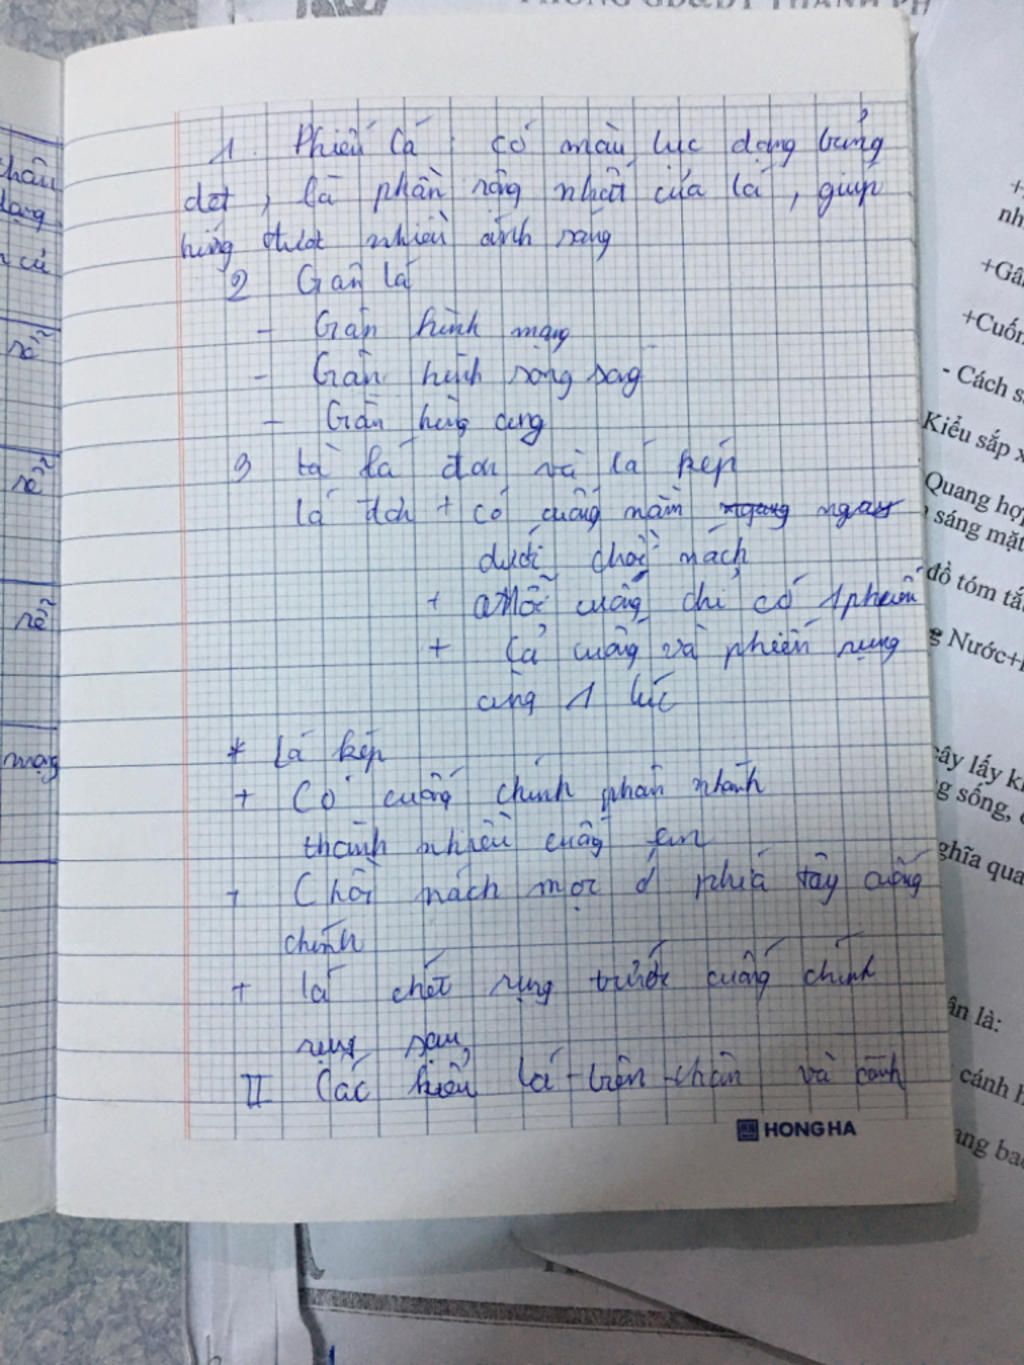 PHÒNG GD&ĐT THÀNH PH
1. Phiến lá : có màu lục dạng bảng
dẹt, là phần rộng nhất của lá, giúp
hứng được nhiều ánh sáng
2 Gân lá
- Gân hình mạng
- Gân hình song song
- Gân hình cung
3 lá đơn và lá kép
lá đơn + có cuống nằm ngay
dưới chồi nách
+ Mỗi cuống chỉ có 1 phiến
+ Cả cuống và phiến rụng
cùng 1 lúc
* Lá kép
+ Có cuống chính phân nhánh
thành nhiều cuống con
+ Chồi nách mọc ở phía cuống
chính
+ lá chét rụng trước cuống chính
rụng sau
II Các kiểu lá trên thân và cành
HONG HA
+Gâ
+Cuốn
- Cách s
Kiểu sắp x
Quang hợ
sáng mặt
đồ tóm tắ
Nước+
cây lấy k
g sống,
nghĩa qua
ân là:
cánh h
ang ba